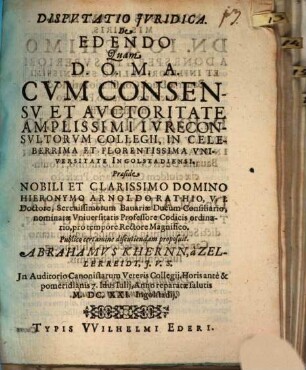 DISPVTATIO JVRIDICA.
De
EDENDO
Quam
D. O. M. A.
CVM CONSEN-
SV ET AVCTORITATE
AMPLISSIMI IVRECON-
SVLTORVM COLLEGII, IN CELE-
BERRIMA ET FLORENTISSIMA VNI-
VERSITATE INGOLSTADIENSI,
Præside
NOBILI ET CLARISSIMO DOMINO
HIERONYMO ARNOLDO RATHIO, V. I.
Doctore, Serenissimorum Bavariæ Ducum Consiliario,
nominatæ Vniversitatis Professore Codicis ordina-
rio, pro tempore Rectore Magnifico.
Publico certamine discutiendam proposuit.
ABRAHAMVS KHERNN, à ZEL-
LERREIDT, J. V. S.
Jn Auditorio Canonistarum Veteris Collegij, Horis antè &
pomeridianis 7. Idus Julij, Anno reparatæ salutis
M. DC. XXI. Ingolstadij,
TYPIS VVILHELMI EDERI.